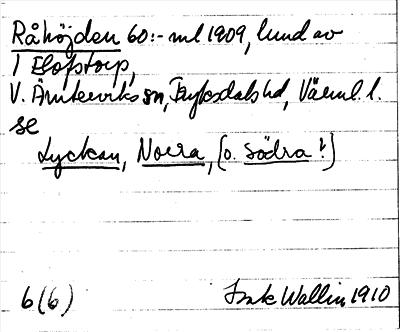 Råhöjden 60:- ml 1909, lund av
1 Elofstorp,
V. Ämterviks sn, Fryksdals hd, Värml. l.
se
Lyckan, Norra, (o. Södra?)
6(6) Wallin 1910